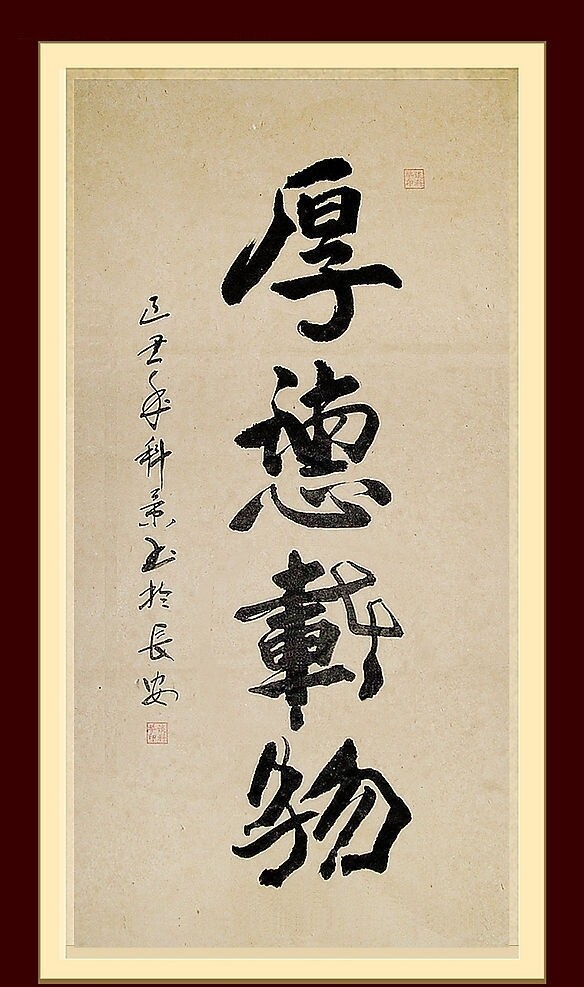 厚德載物
己丑年科景书於長安